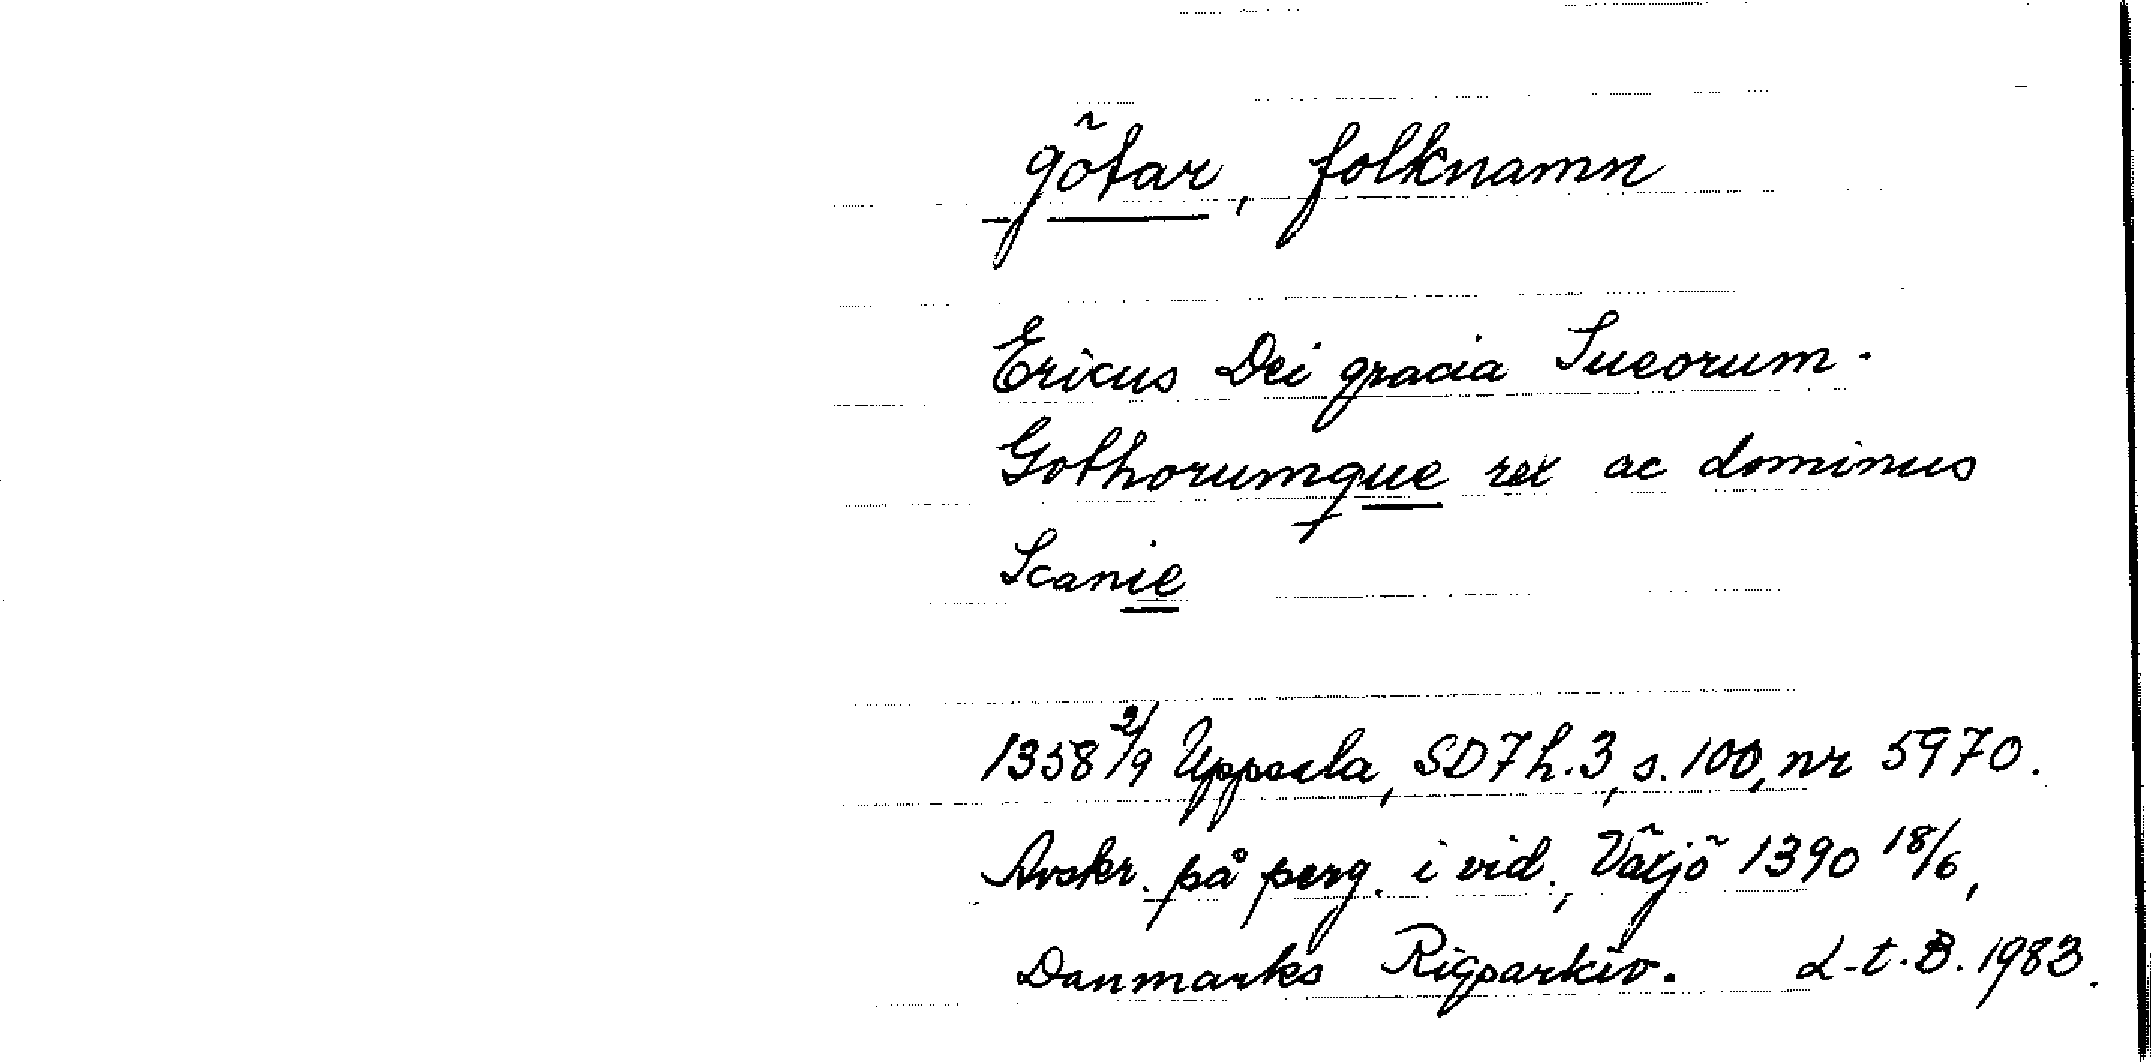 götar, folknamn
Ericus Dei gracia Sueorum.
Gothorumque rex ac dominus
Scanie
1358 2/9 Uppsala, SD 7 h. 3, s. 100, nr 5970.
Avskr. på perg. i vid., Växjö 1390 18/6,
Danmarks Rigsarkiv. L-t.B. 1983.